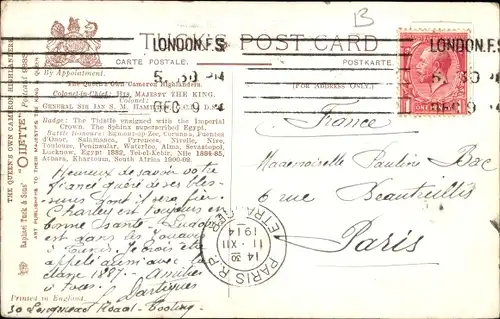 B
TUCK'S POST CARD
CARTE POSTALE.
POSTKARTE.
By Appointment.
LONDON.F.S
5. 30 PM
DEC 9 14
LONDON.F.S
5. 30 PM
DEC 9 14
ONE PENNY
(FOR ADDRESS ONLY.)
THE QUEEN'S OWN CAMERON HIGHLANDERS
Raphael Tuck & Sons' "OILETTE" Postcard 9885
ART PUBLISHERS TO THEIR MAJESTIES THE KING & QUEEN
The Queen's Own Cameron Highlanders.
Colonel-in-Chief: HIS MAJESTY THE KING.
Colonel:
GENERAL SIR IAN S. M. HAMILTON, D.S.O.
Badge: The Thistle ensigned with the Imperial
Crown. The Sphinx superscribed Egypt.
Battle Honours: Egmont-op-Zee, Corunna, Fuentes
d'Onor, Salamanca, Pyrenees, Nivelle, Nive,
Toulouse, Peninsular, Waterloo, Alma, Sevastopol,
Lucknow, Egypt 1882, Tel-el-Kebir, Nile 1884-85,
Atbara, Khartoum, South Africa 1900-02.
France
Mademoiselle Pauline Bac
6 rue Beautreillis
Paris
Heureux de savoir votre
fiancé guéri de ses bles-
sures dont il sera fier.
Charley est toujours en
bonne santé.
est dans les
à Je crois être
appelé aussi avec la
classe 1887. Amitiés
à tous.
PARIS R.P. ETRANGER
14 30
11 - XII
1914
Printed in England.
30 Longmead Road - Tooting.